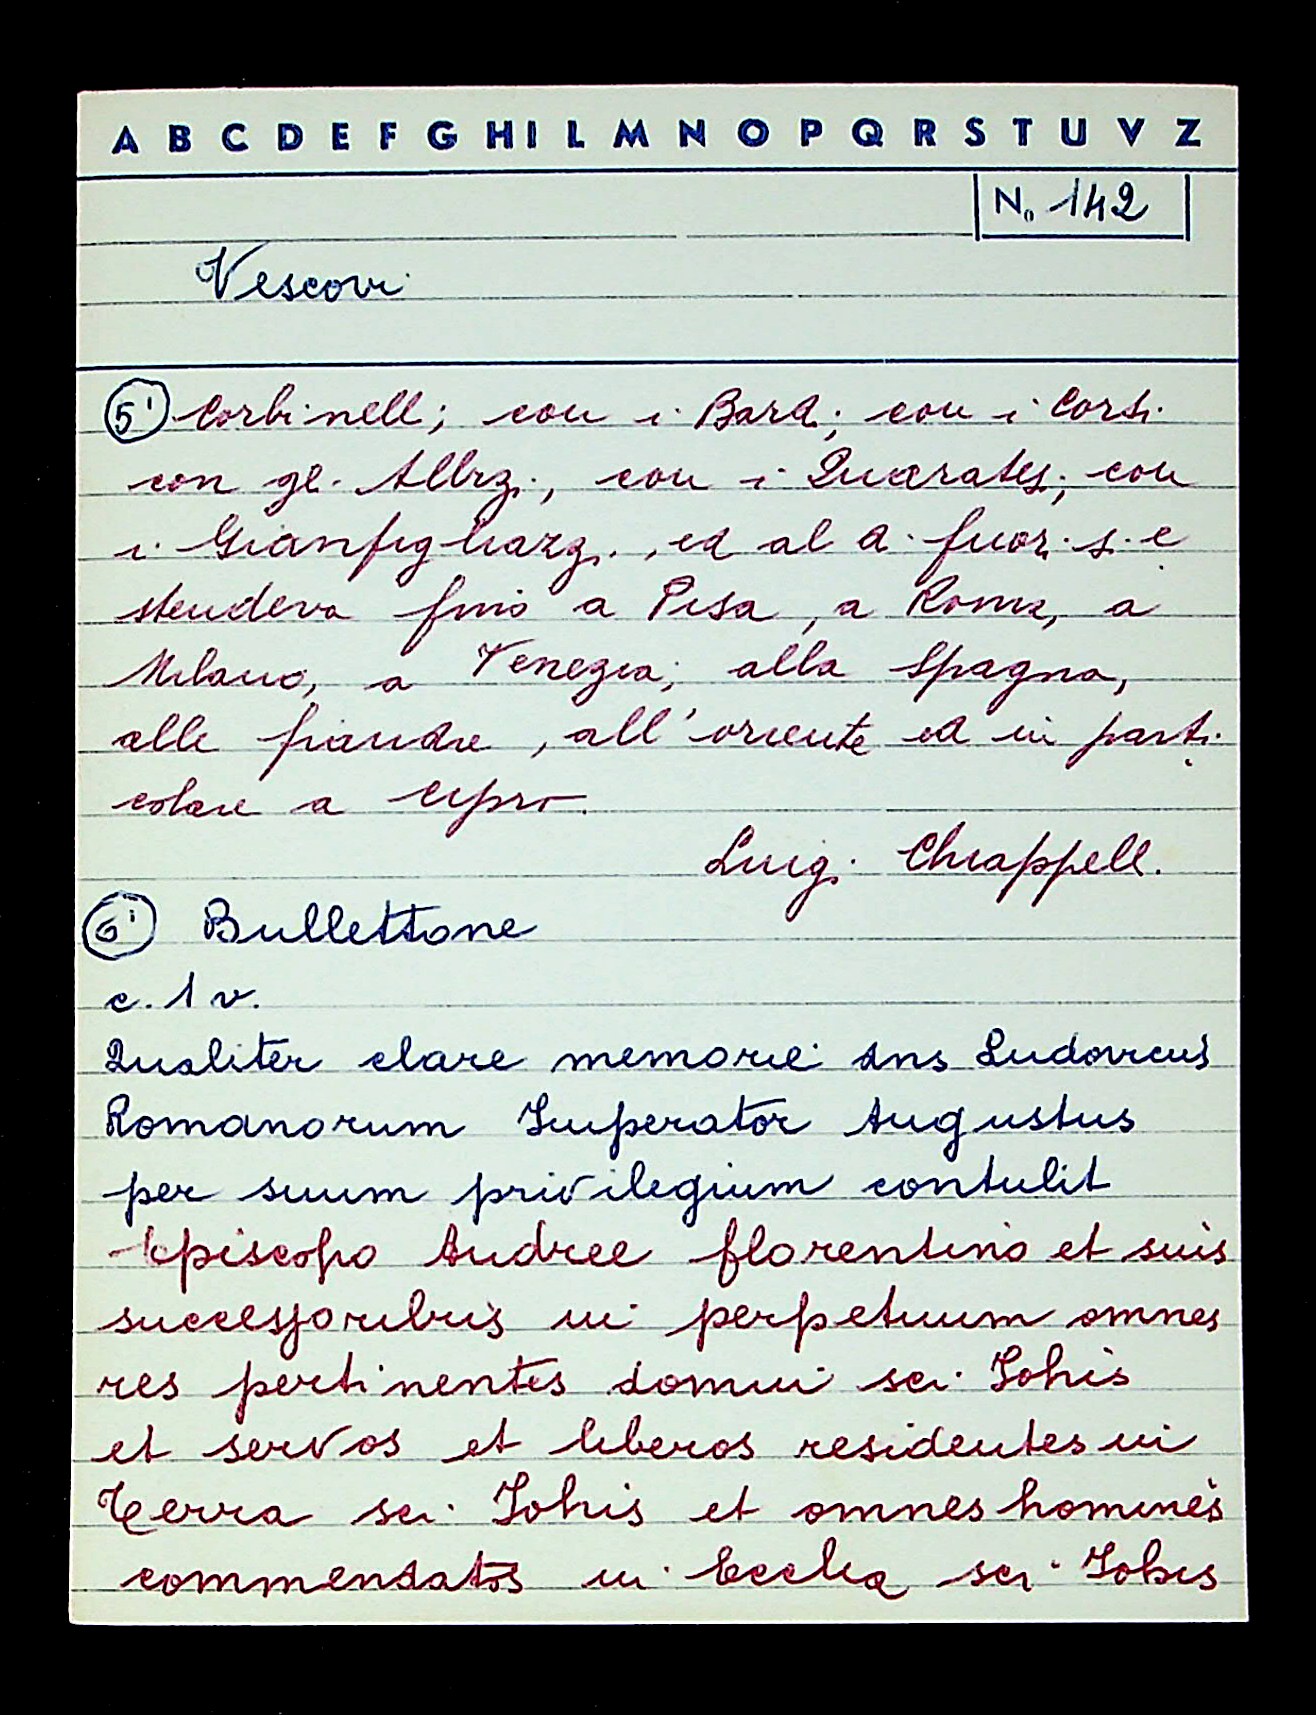 A B C D E F G H I L M N O P Q R S T U V Z
No 142
Vescovi
5' Corbinelli; con i Bardi; con i Corsi
con gli Albizi, con i Quaratesi; con
i Gianfigliazzi, ed al di fuori si e
stendeva fino a Pisa, a Roma, a
Milano, a Venezia; alla Spagna,
alle fiandre, all'oriente ed in parti
colare a Cipro.
Luigi Chiappelli.
6' Bullettone
c. 1 v.
Qualiter clare memorie dns Ludovicus
Romanorum Imperator Augustus
per suum privilegium contulit
Episcopo Andree florentino et suis
successoribus in perpetuum omnes
res pertinentes domui sci Iohis
et servos et liberos residentes in
terra sci Iohis et omnes homines
commendatos in Ecclia sci Iohis